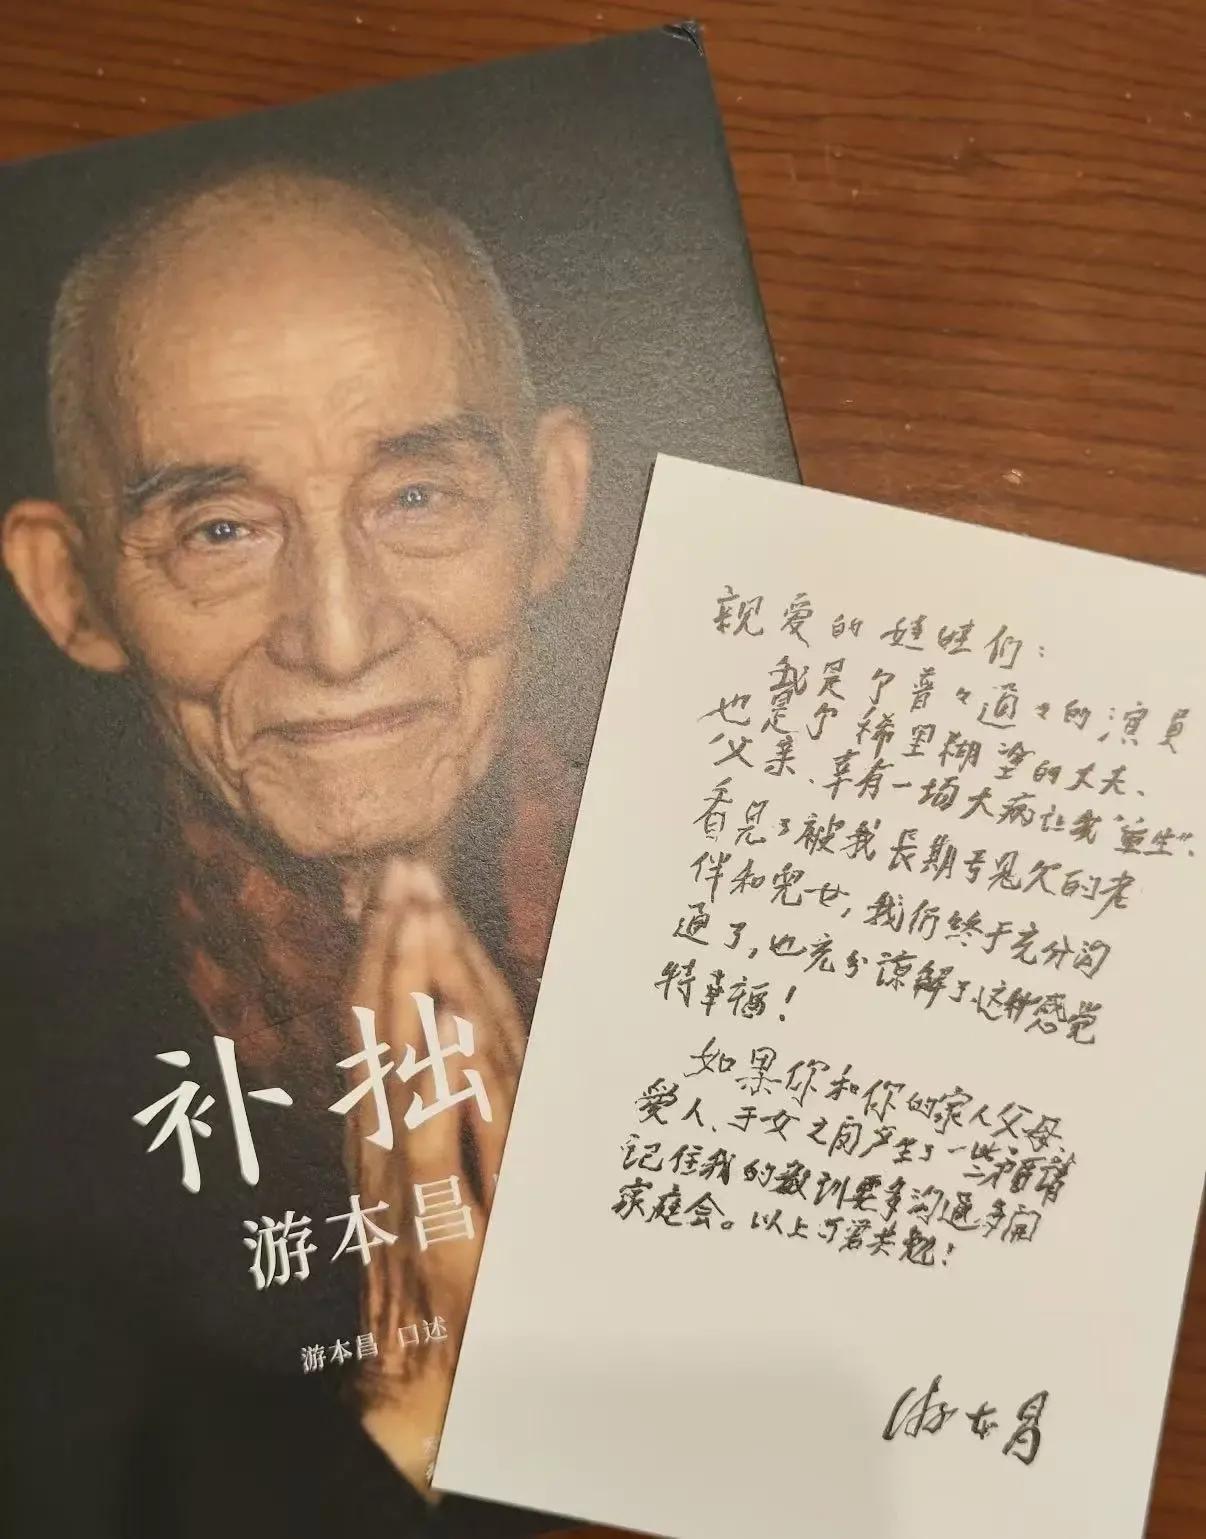 补拙
游本昌
游本昌 口述
亲爱的娃娃们：
我是个普々通々的演员
也是个稀里糊塗的丈夫、
父亲、幸有一场大病让我“重生”、
看见了被我长期亏欠的老
伴和兒女，我们终于充分沟
通了，也充分谅解了这种感觉
特幸福！
如果你和你的家人父母、
愛人、子女之间产生了一些矛盾请
记住我的教训要多沟通多開
家庭会。以上与君共勉！
游本昌